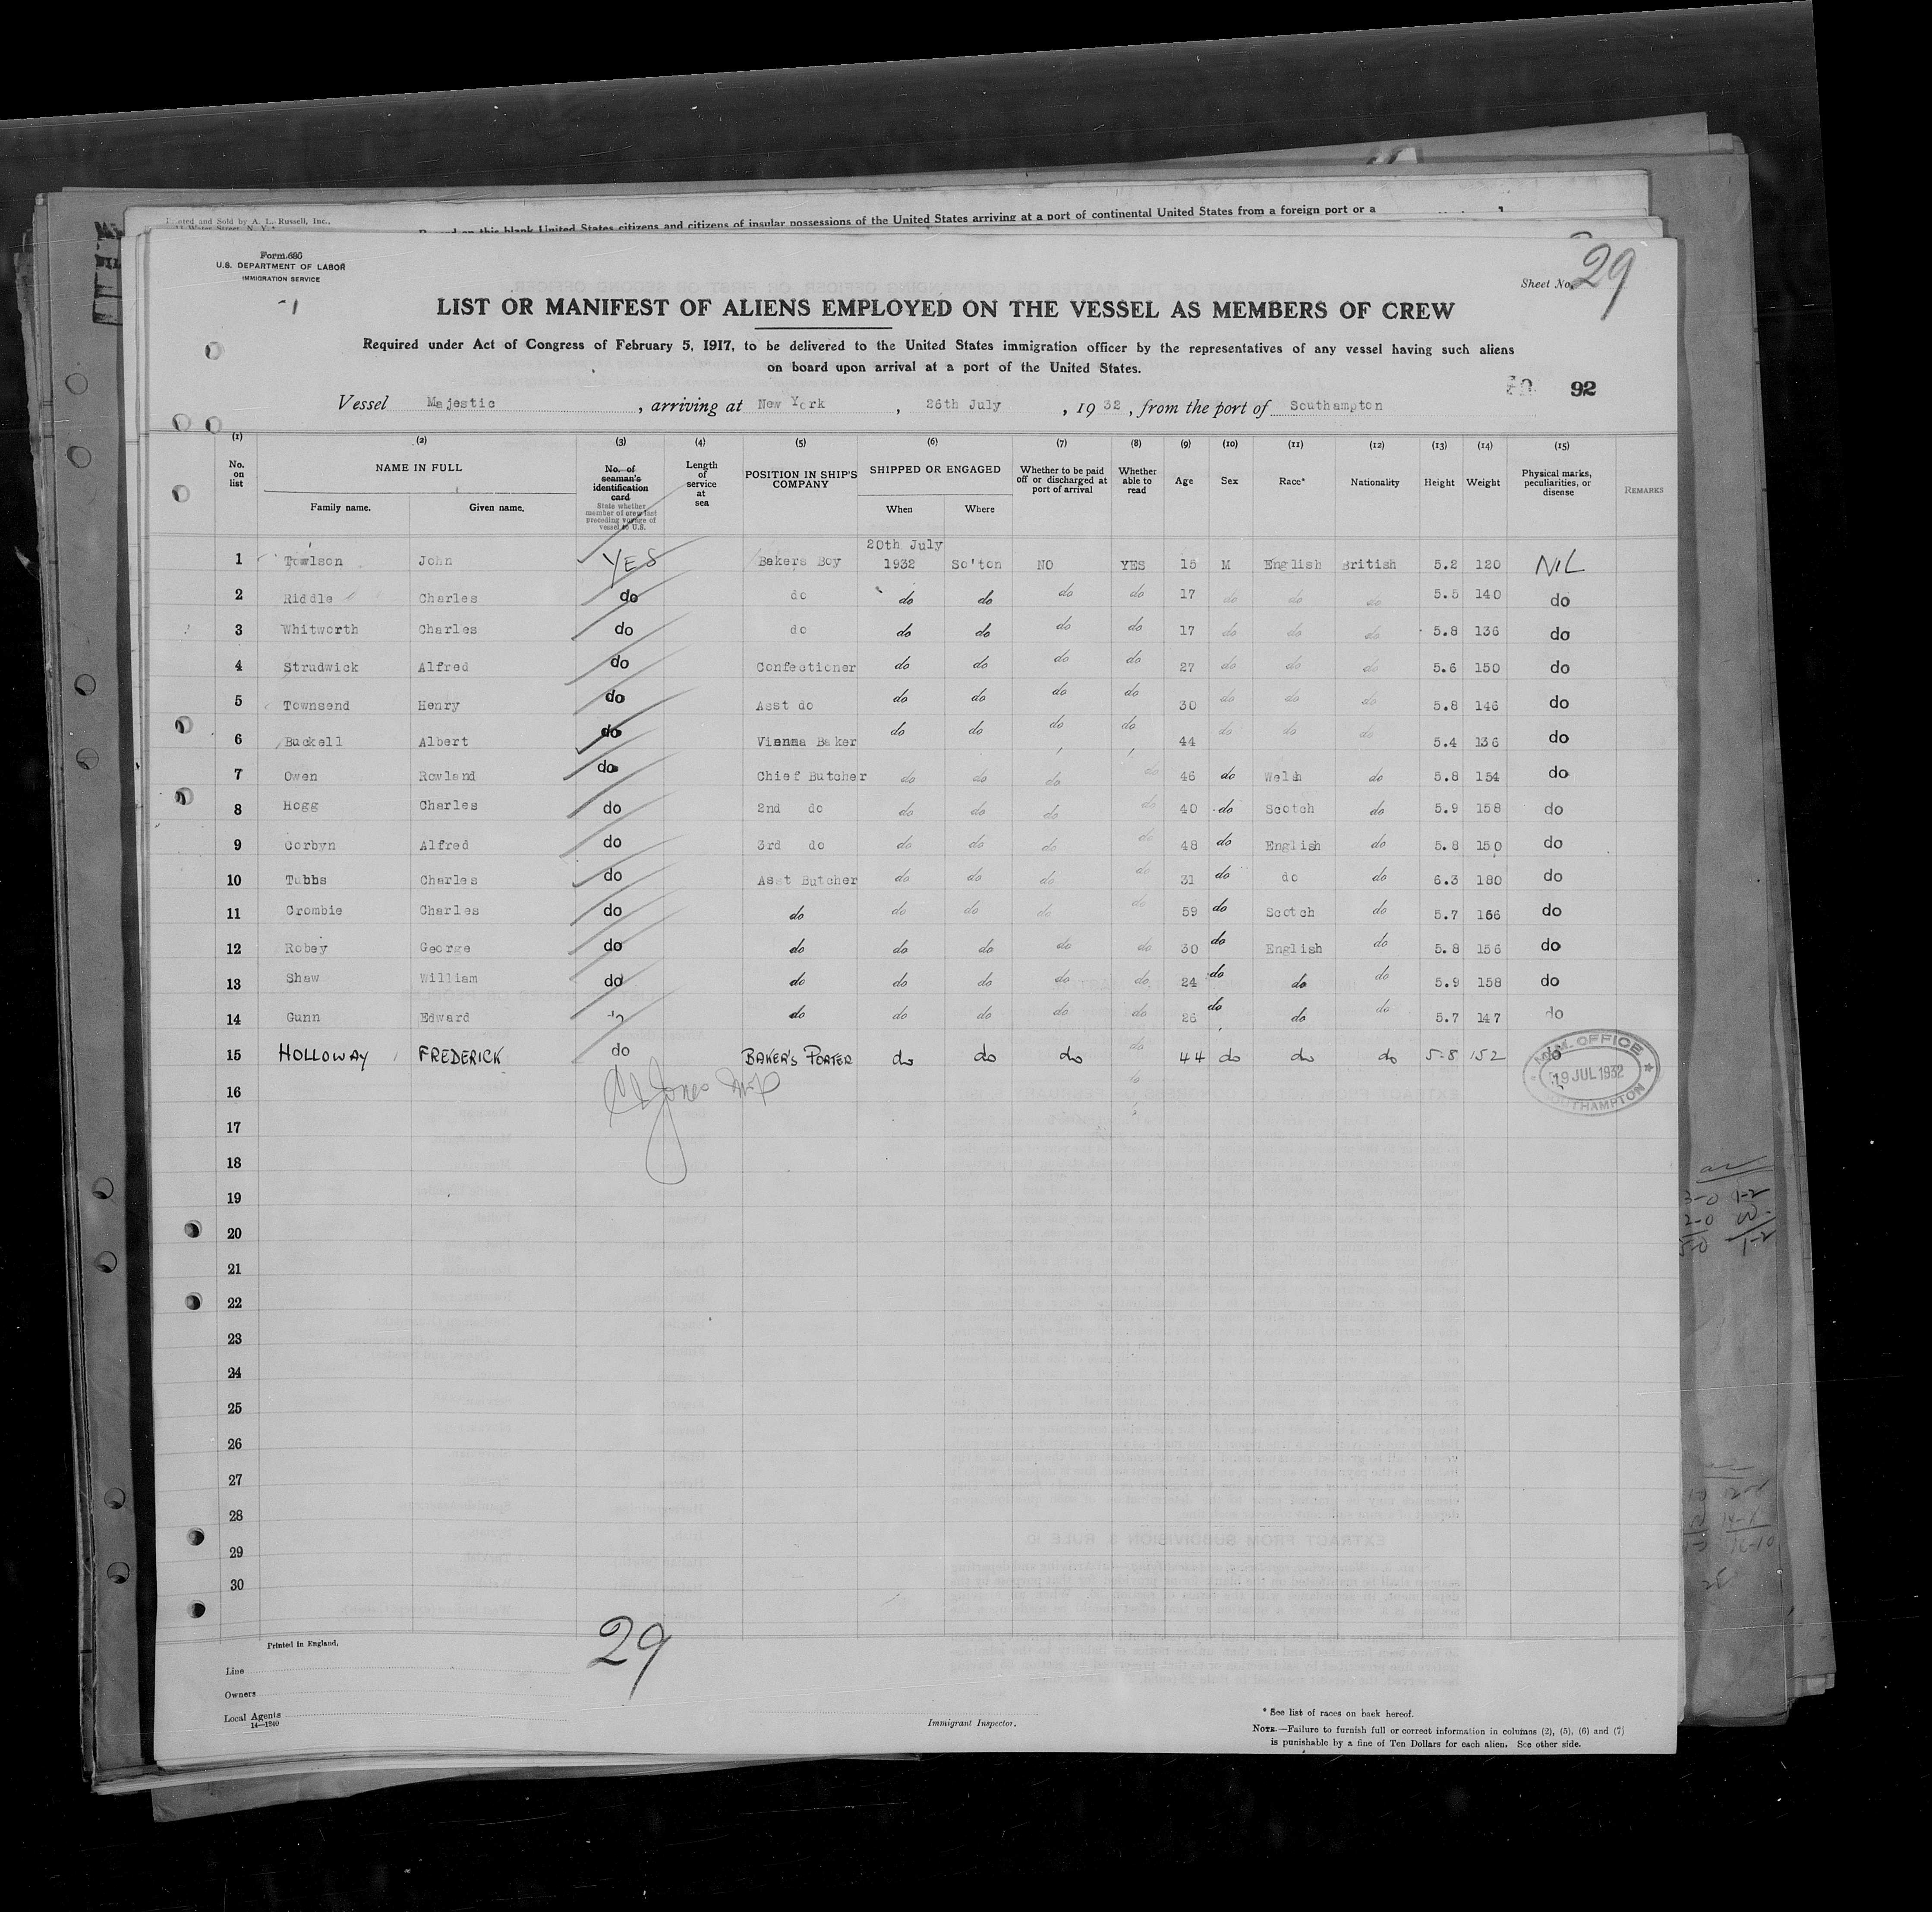 Printed and Sold by A. L. Russell, Inc.,
on this blank United States citizens and citizens of insular possessions of the United States arriving at a port of continental United States from a foreign port or a
Form 680
U.S. DEPARTMENT OF LABOR
IMMIGRATION SERVICE
-1
Sheet No. 29
LIST OR MANIFEST OF ALIENS EMPLOYED ON THE VESSEL AS MEMBERS OF CREW
Required under Act of Congress of February 5, 1917, to be delivered to the United States immigration officer by the representatives of any vessel having such aliens
on board upon arrival at a port of the United States.
92
Vessel Majestic, arriving at New York, 26th July, 1932, from the port of Southampton
(1) (2) (3) (4) (5) (6) (7) (8) (9) (10) (11) (12) (13) (14) (15)
No. on list NAME IN FULL Family name. Given name. No. of seaman's identification card State whether member of crew last preceding voyage of vessel to U.S. Length of service at sea POSITION IN SHIP'S COMPANY SHIPPED OR ENGAGED When Where Whether to be paid off or discharged at port of arrival Whether able to read Age Sex Race* Nationality Height Weight Physical marks, peculiarities, or disease REMARKS
1 Towlson John YES Bakers Boy 20th July 1932 So'ton NO YES 15 M English British 5.2 120 NIL
2 Riddle Charles do do do do do do 17 do do do 5.5 140 do
3 Whitworth Charles do do do do do do 17 do do do 5.8 136 do
4 Strudwick Alfred do Confectioner do do do do 27 do do do 5.6 150 do
5 Townsend Henry do Asst do do do do do 30 do do do 5.8 146 do
6 Buckell Albert do Vienna Baker do do do do 44 do do do 5.4 136 do
7 Owen Rowland do Chief Butcher do do do do 46 do Welsh do 5.8 154 do
8 Hogg Charles do 2nd do do do do do 40 do Scotch do 5.9 158 do
9 Corbyn Alfred do 3rd do do do do do 48 do English do 5.8 150 do
10 Tubbs Charles do Asst Butcher do do do do 31 do do do 6.3 180 do
11 Crombie Charles do do do do do do 59 do Scotch do 5.7 166 do
12 Robey George do do do do do do 30 do English do 5.8 156 do
13 Shaw William do do do do do do 24 do do do 5.9 158 do
14 Gunn Edward do do do do do 26 do do do 5.7 147 do
15 HOLLOWAY FREDERICK do BAKER'S PORTER do do do do 44 do do do 5-8 152 do
M.M. OFFICE
19 JUL 1932
SOUTHAMPTON
16
17
18
19
20
21
22
23
24
25
26
27
28
29
30
Printed in England.
29
Line
Owners
Local Agents
14—1240
Immigrant Inspector.
* See list of races on back hereof.
NOTE.—Failure to furnish full or correct information in columns (2), (5), (6) and (7)
is punishable by a fine of Ten Dollars for each alien. See other side.